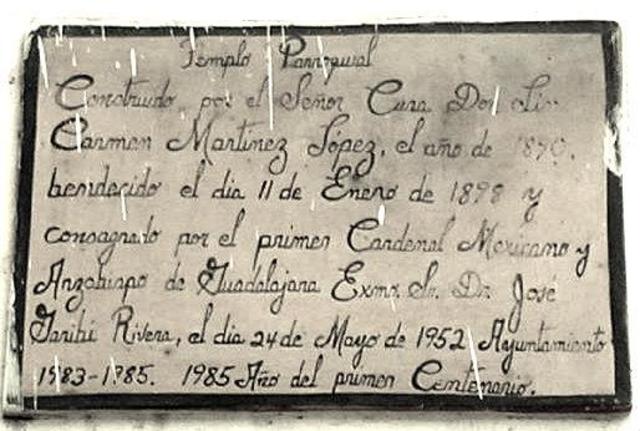 Templo Parroquial
Construido por el Señor Cura Don
Carmen Martínez López, el año de 1890.
bendecido el dia 11 de Enero de 1898 y
consagrado por el primer Cardenal Mexicano y
Arzobispo de Guadalajara Exmo. Sr. Dr. José
Garibi Rivera, el dia 24 de Mayo de 1952 Ayuntamiento
1983-1985. 1985 Año del primer Centenario.